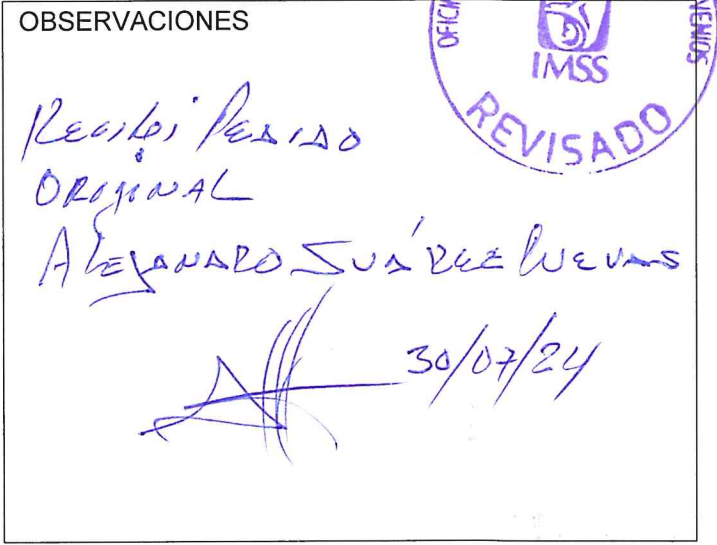 OBSERVACIONES
OFICI
VENIOS
IMSS
REVISADO
Recibi Pedido
ORIGINAL
ALEJANDRO SUÁREZ CUEVAS
30/07/24